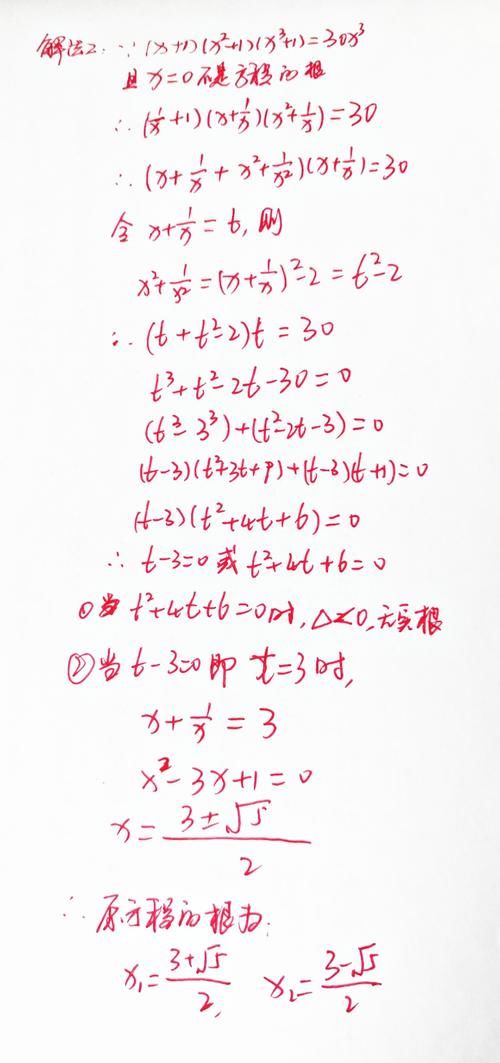 解法2: ∵ (x+1)(x²+1)(x³+1)=30x³
且 x=0 不是方程的根
∴ (1/x+1)(x+1/x)(x²+1/x)=30
∴ (x+1/x+x²+1/x²)(x+1/x)=30
令 x+1/x=t, 则
x²+1/x²=(x+1/x)²-2=t²-2
∴ (t+t²-2)t=30
t³+t²-2t-30=0
(t³-3³)+(t²-2t-3)=0
(t-3)(t²+3t+9)+(t-3)(t+1)=0
(t-3)(t²+4t+6)=0
∴ t-3=0 或 t²+4t+6=0
①当 t²+4t+6=0时, Δ<0, 无实根
②当 t-3=0 即 t=3 时,
x+1/x=3
x²-3x+1=0
x=(3±√5)/2
∴ 原方程的根为:
x₁=(3+√5)/2, x₂=(3-√5)/2